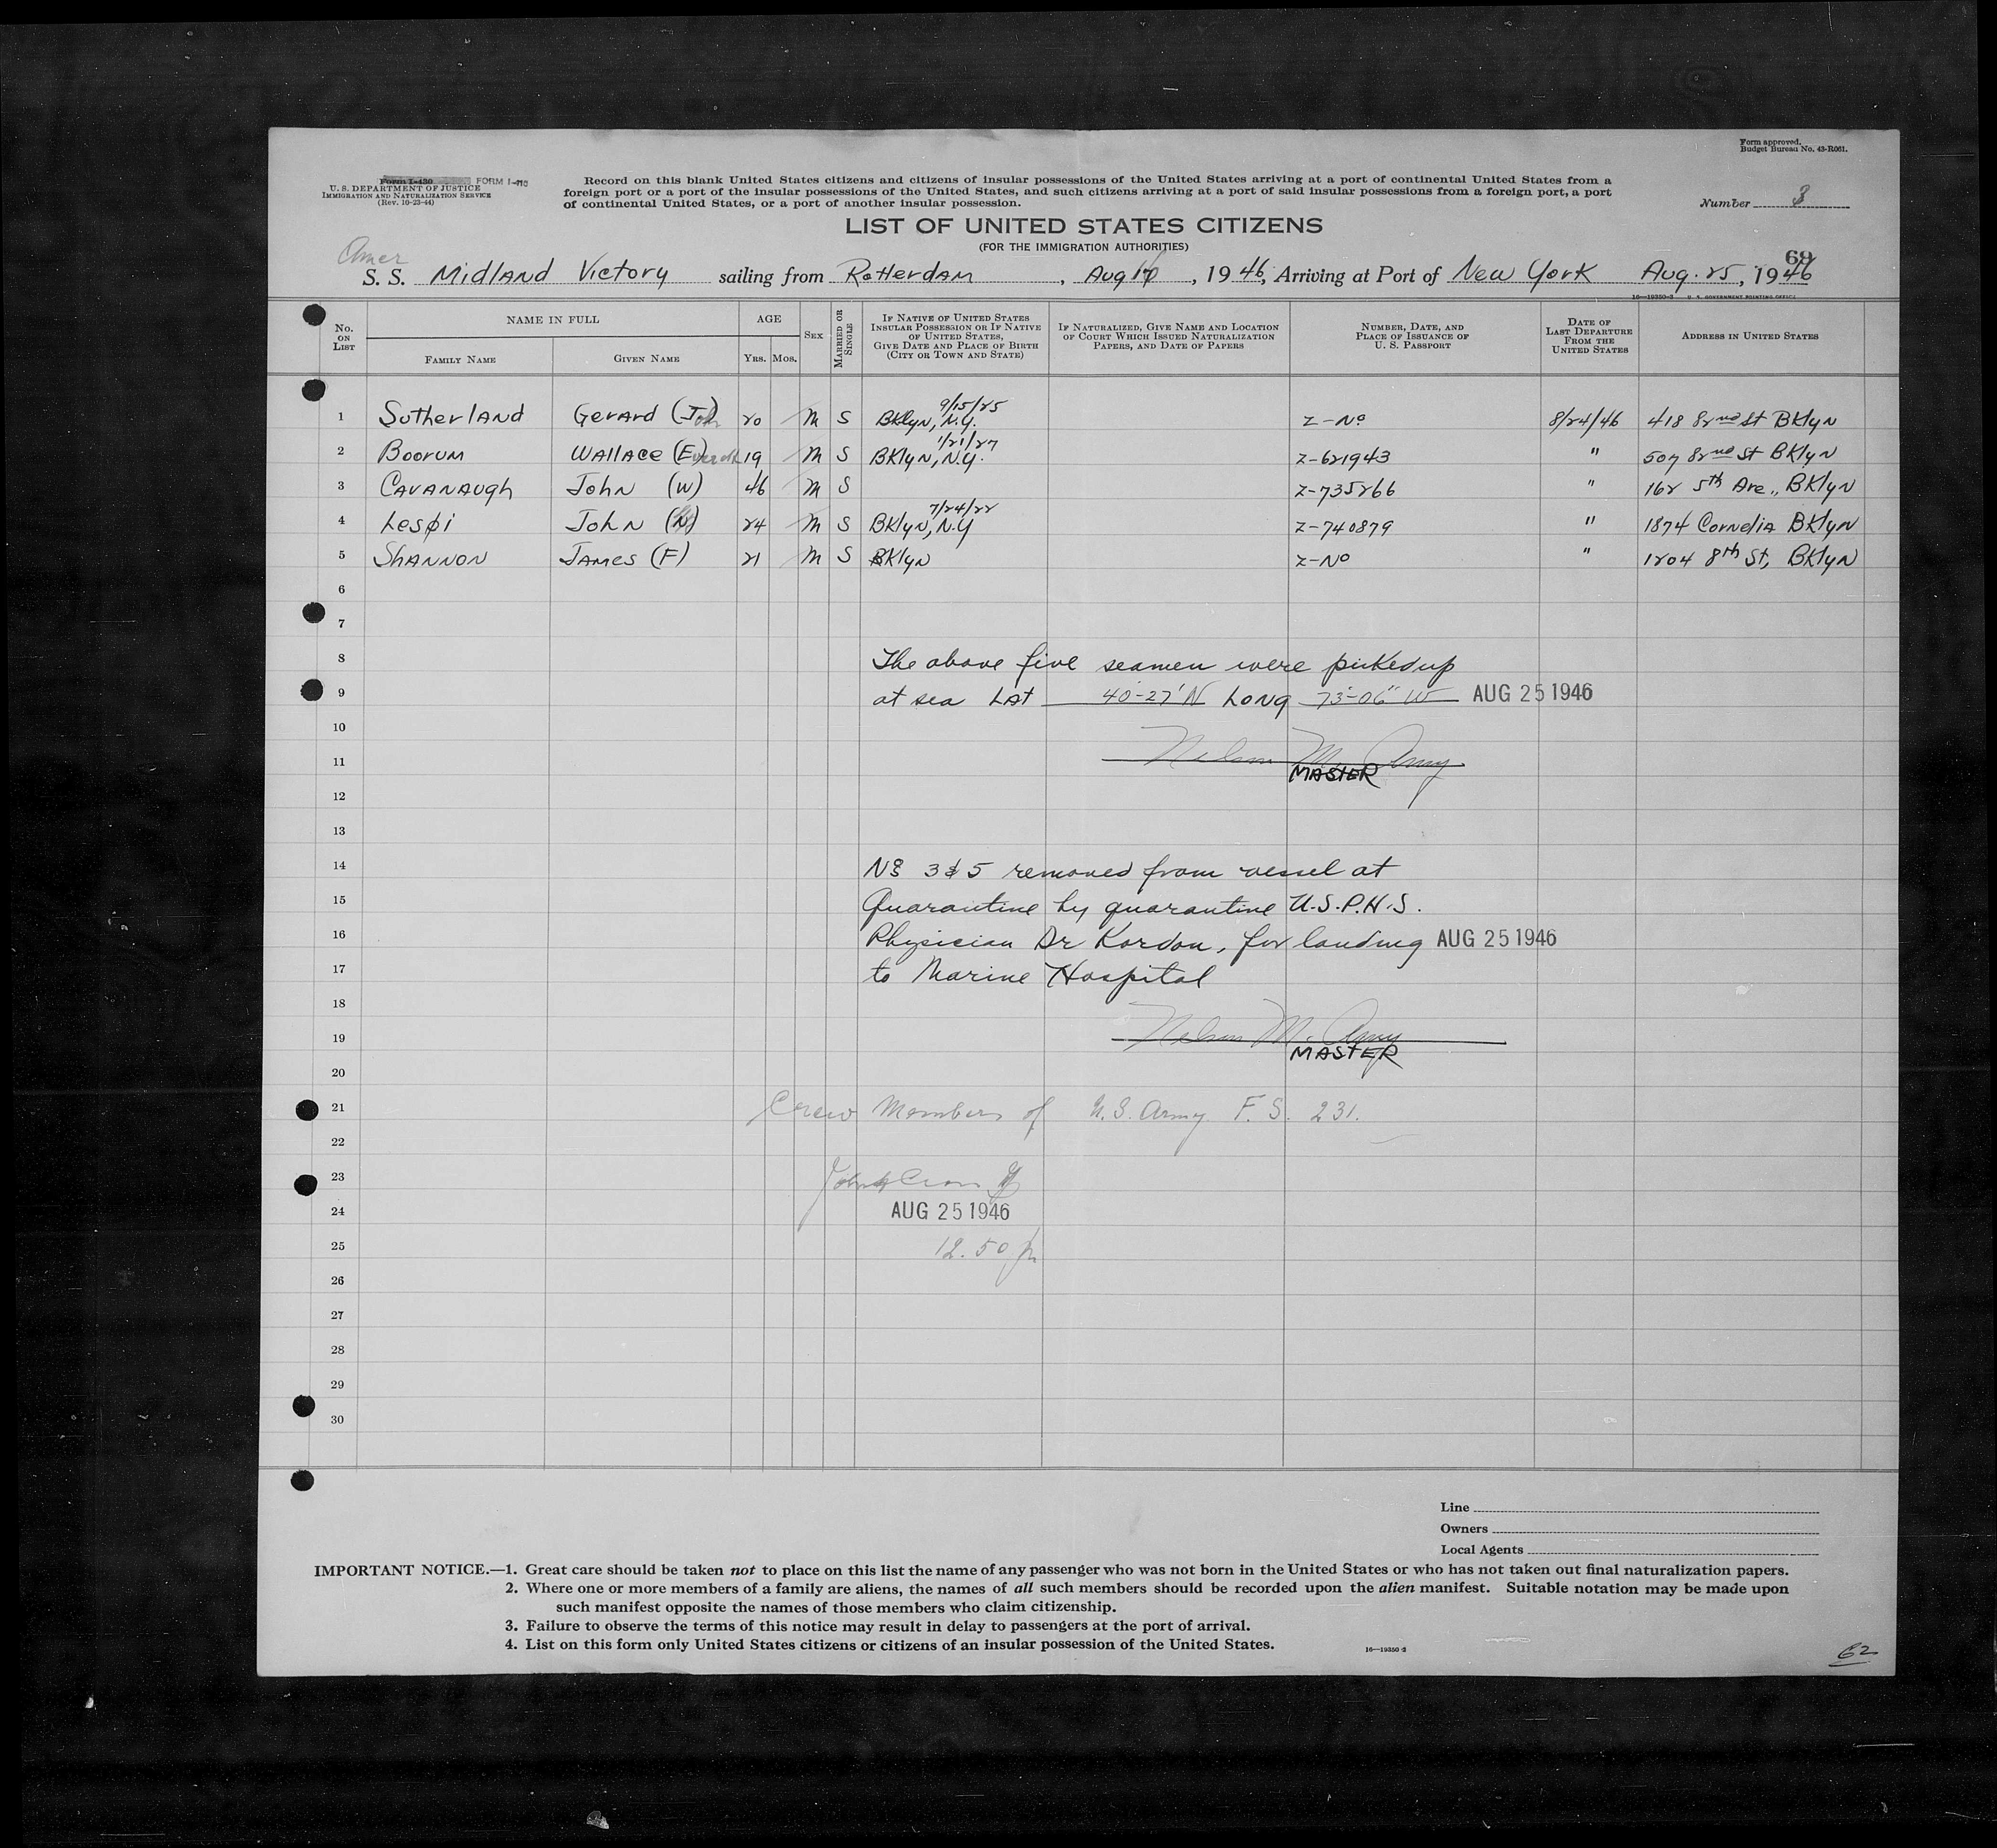 Form approved.
Budget Bureau No. 43-R061.
Form I-430 FORM I-410
U. S. DEPARTMENT OF JUSTICE
IMMIGRATION AND NATURALIZATION SERVICE
(Rev. 10-23-44)
Record on this blank United States citizens and citizens of insular possessions of the United States arriving at a port of continental United States from a
foreign port or a port of the insular possessions of the United States, and such citizens arriving at a port of said insular possessions from a foreign port, a port
of continental United States, or a port of another insular possession.
Number 3
LIST OF UNITED STATES CITIZENS
(FOR THE IMMIGRATION AUTHORITIES)
69
Amer
S. S. Midland Victory sailing from Rotterdam, Aug, 1946, Arriving at Port of New York Aug. 25, 1946
16—19350-2 U. S. GOVERNMENT PRINTING OFFICE
No. on List
NAME IN FULL
Family Name
Given Name
AGE
Yrs. Mos.
Sex
Married or Single
If Native of United States
Insular Possession or If Native
of United States,
Give Date and Place of Birth
(City or Town and State)
If Naturalized, Give Name and Location
of Court Which Issued Naturalization
Papers, and Date of Papers
Number, Date, and
Place of Issuance of
U. S. Passport
Date of
Last Departure
From the
United States
Address in United States
1 Sutherland Gerard (John) 20 M S 9/15/25 Bklyn, N.Y. Z-No 8/24/46 418 82nd St Bklyn
2 Boorum Wallace (E)verett 19 M S 1/21/27 Bklyn, N.Y. Z-621943 " 507 82nd St Bklyn
3 Cavanaugh John (W) 46 M S Z-735266 " 162 5th Ave., Bklyn
4 John (N) 24 M S 7/24/22 Bklyn, N.Y Z-740879 " 1874 Cornelia Bklyn
5 Shannon James (F) 21 M S Bklyn Z-No " 1204 8th St, Bklyn
6
7
8 The above five seamen were picked up
9 at sea Lat 40-27'N Long 73-06" W AUG 25 1946
10
11 Nelson M. Amy
MASTER
12
13
14 Nos 3 & 5 removed from vessel at
15 Quarantine by quarantine U.S.P.H.S.
16 Physician Dr Kordon, for landing AUG 25 1946
17 to Marine Hospital
18
19 Nelson M. Amy
MASTER
20
21 Crew Members of U.S. Army F. S. 231.
22
23
24 AUG 25 1946
25 12.50 p
26
27
28
29
30
Line
Owners
Local Agents
IMPORTANT NOTICE.—1. Great care should be taken not to place on this list the name of any passenger who was not born in the United States or who has not taken out final naturalization papers.
2. Where one or more members of a family are aliens, the names of all such members should be recorded upon the alien manifest. Suitable notation may be made upon
such manifest opposite the names of those members who claim citizenship.
3. Failure to observe the terms of this notice may result in delay to passengers at the port of arrival.
4. List on this form only United States citizens or citizens of an insular possession of the United States.
16—19350-2
62